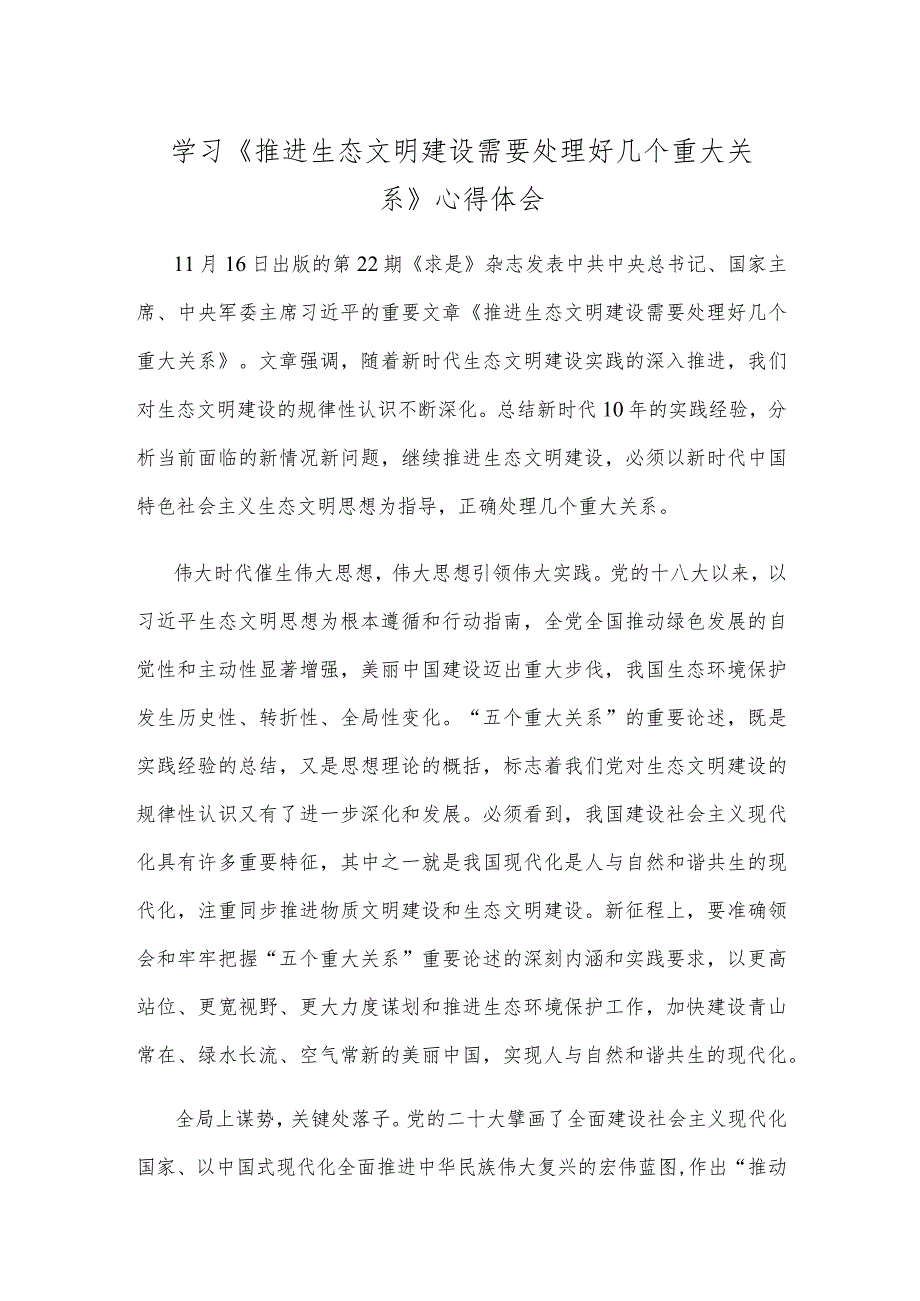 学习《推进生态文明建设需要处理好几个重大关
系》心得体会
11月16日出版的第22期《求是》杂志发表中共中央总书记、国家主
席、中央军委主席习近平的重要文章《推进生态文明建设需要处理好几个
重大关系》。文章强调，随着新时代生态文明建设实践的深入推进，我们
对生态文明建设的规律性认识不断深化。总结新时代10年的实践经验，分
析当前面临的新情况新问题，继续推进生态文明建设，必须以新时代中国
特色社会主义生态文明思想为指导，正确处理几个重大关系。
伟大时代催生伟大思想，伟大思想引领伟大实践。党的十八大以来，以
习近平生态文明思想为根本遵循和行动指南，全党全国推动绿色发展的自
觉性和主动性显著增强，美丽中国建设迈出重大步伐，我国生态环境保护
发生历史性、转折性、全局性变化。“五个重大关系”的重要论述，既是
实践经验的总结，又是思想理论的概括，标志着我们党对生态文明建设的
规律性认识又有了进一步深化和发展。必须看到，我国建设社会主义现代
化具有许多重要特征，其中之一就是我国现代化是人与自然和谐共生的现
代化，注重同步推进物质文明建设和生态文明建设。新征程上，要准确领
会和牢牢把握“五个重大关系”重要论述的深刻内涵和实践要求，以更高
站位、更宽视野、更大力度谋划和推进生态环境保护工作，加快建设青山
常在、绿水长流、空气常新的美丽中国，实现人与自然和谐共生的现代化。
全局上谋势，关键处落子。党的二十大擘画了全面建设社会主义现代化
国家、以中国式现代化全面推进中华民族伟大复兴的宏伟蓝图,作出“推动